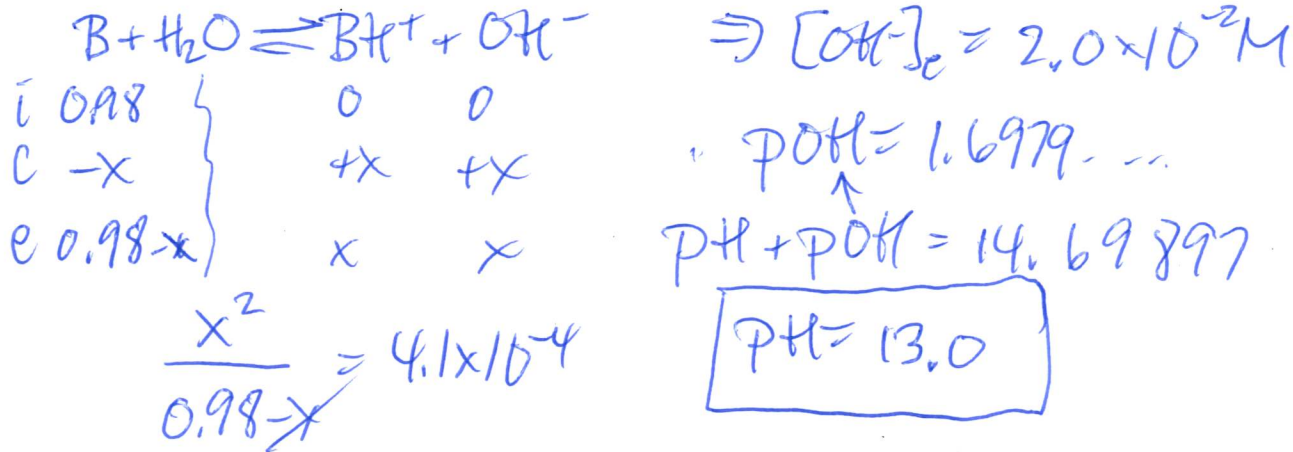 B + H₂O ⇌ BH⁺ + OH⁻
i 0.98 0 0
C -x +x +x
e 0.98-x x x
x² / 0.98-x = 4.1x10⁻⁴
⇒ [OH⁻]e = 2.0x10⁻²M
pOH = 1.6979....
↑
pH + pOH = 14.69897
pH = 13.0